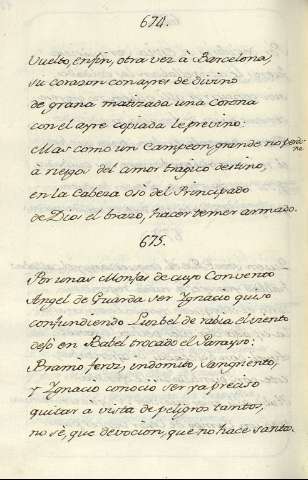 674.
Vuelto, enfin, otra vez à Barcelona,
su corazon con ayres de divino
de grana matizada una Corona
con el ayre copiada le previno:
Mas como un Campeon grande no perdona
à riesgos del amor tragico destino,
en la Cabeza osò del Principado
de Dios el brazo, hacer temer armado.
675.
Por unas Monjas de cuyo Convento
Angel de Guarda ser Ignacio quiso
confundiendo Luzbel de rabia el viento
dexò en Babel trocado el Parayso:
Bramò feroz, indomito, sangriento,
y Ignacio conociò ser ya preciso
quitar à vista de peligros tantos,
no sè, que devocion, que no hace santos.